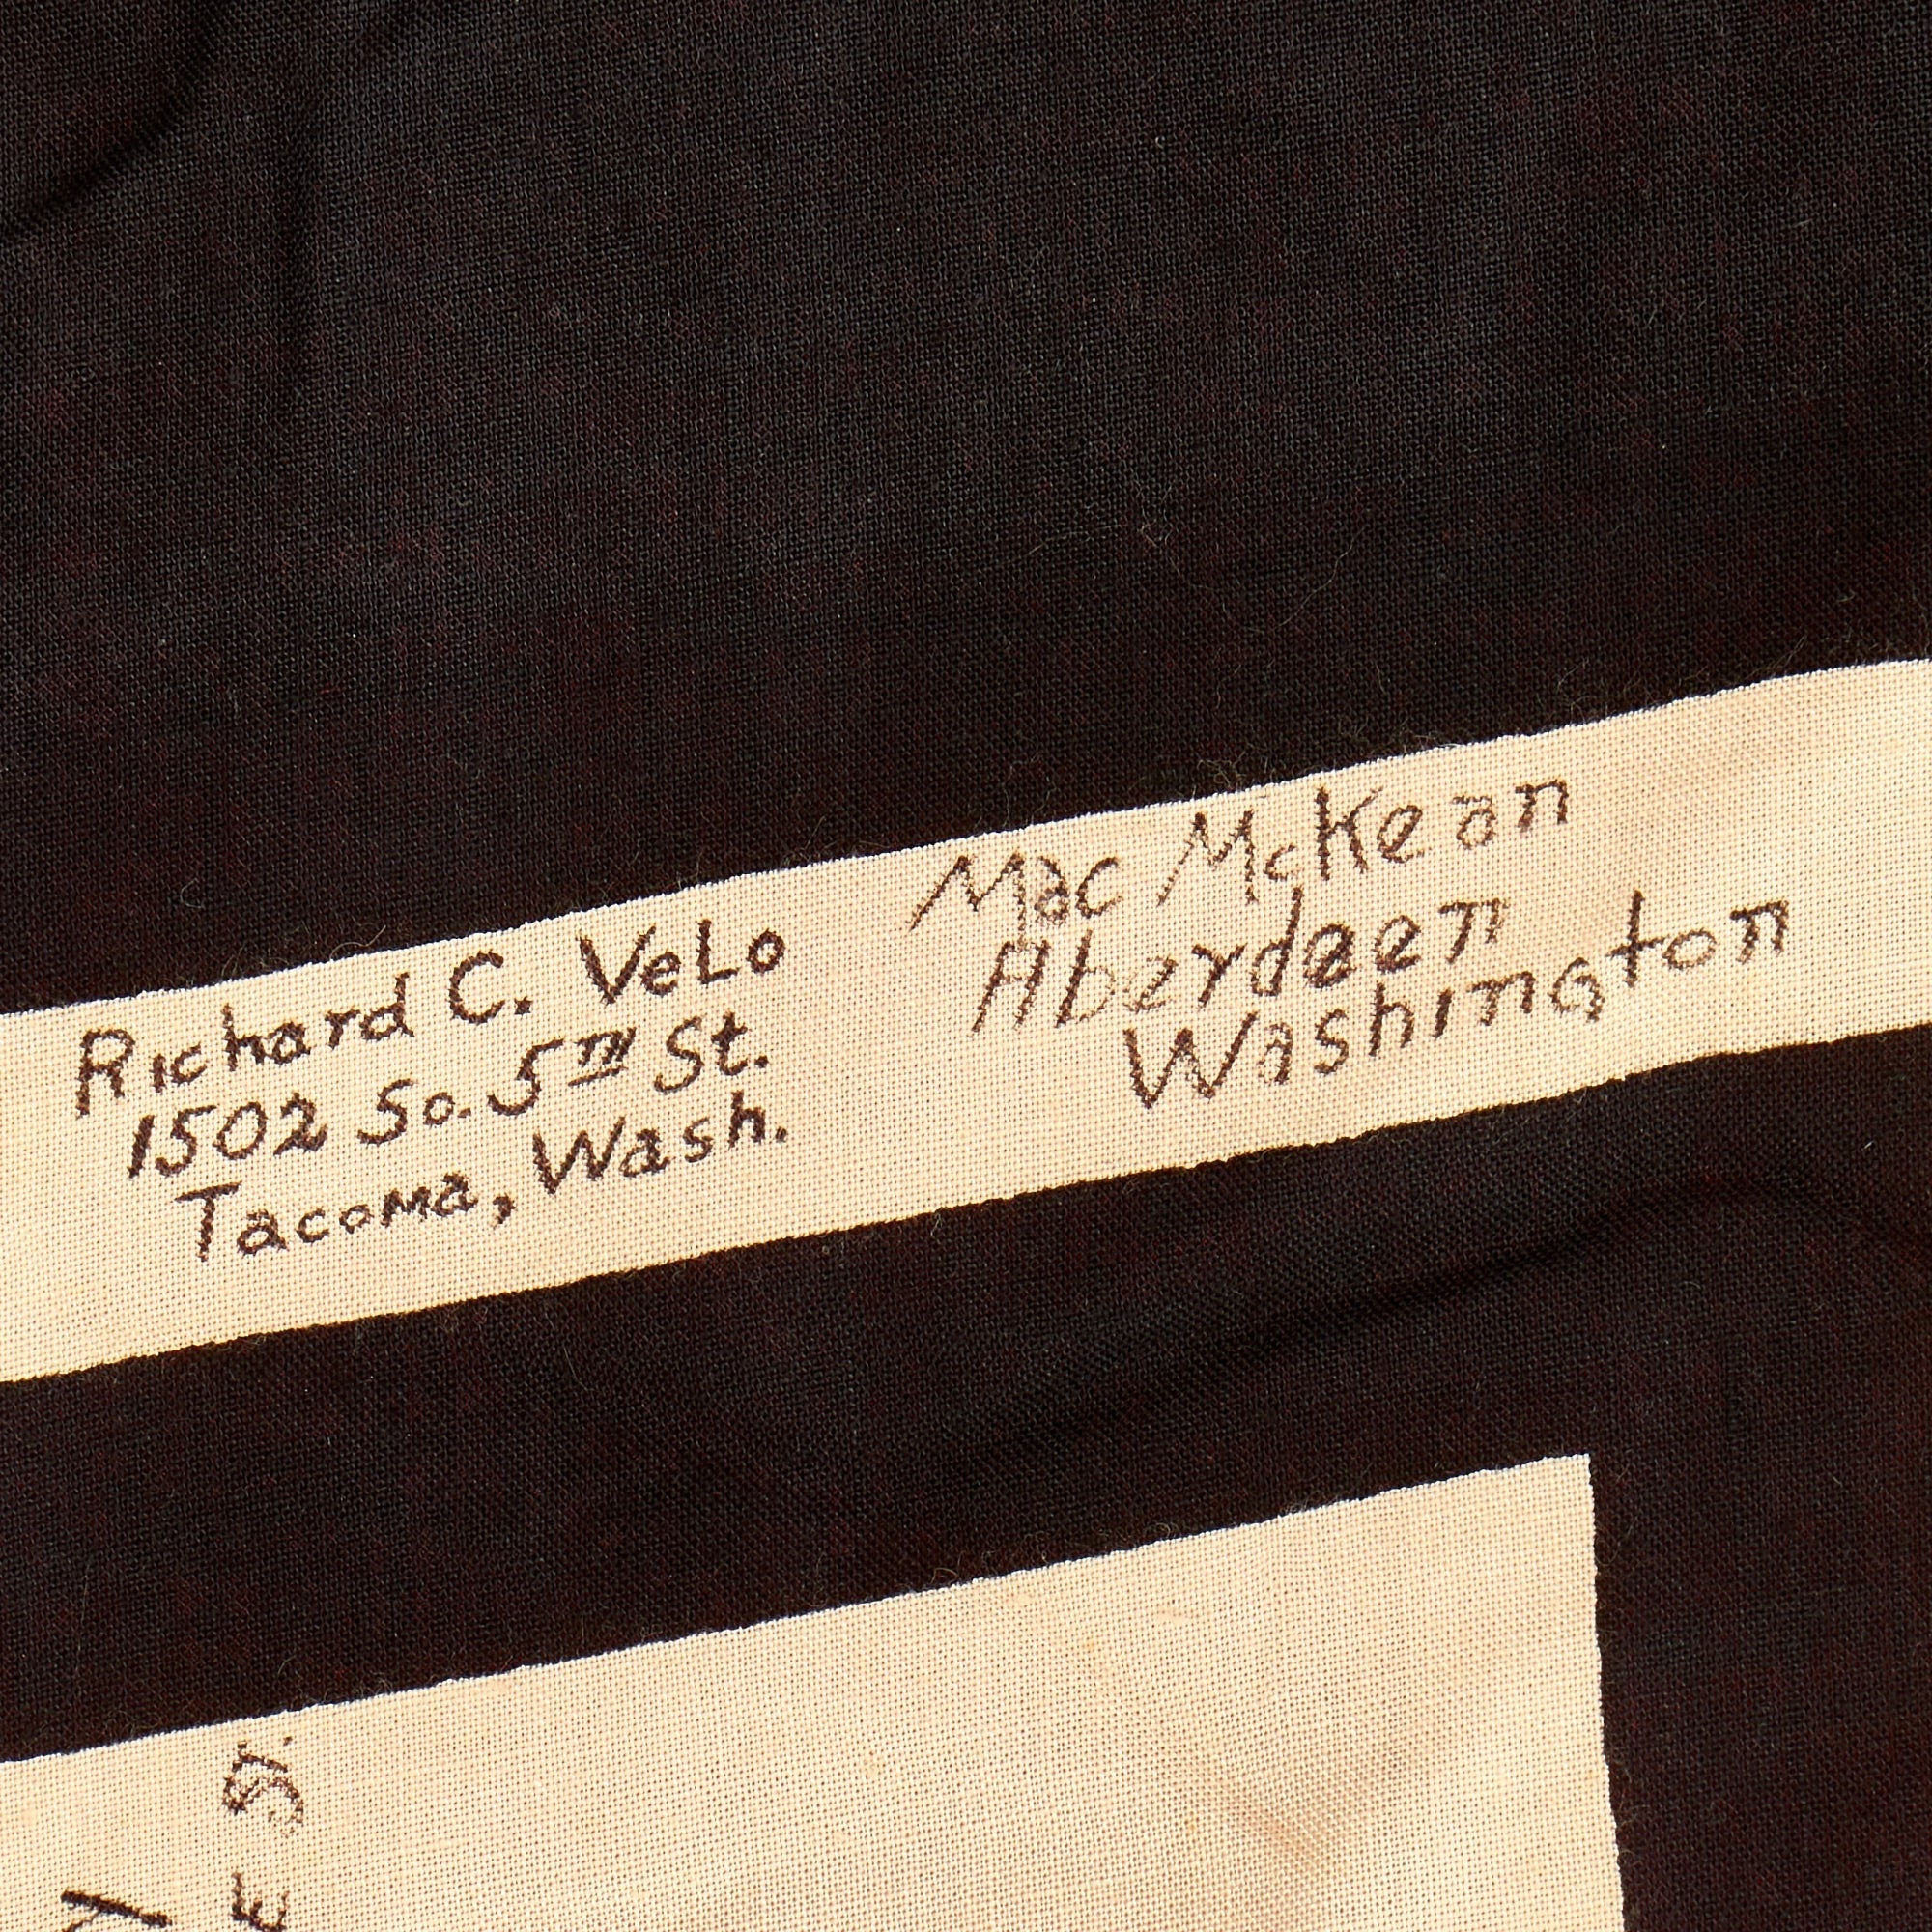 Richard C. VeLo
1502 So. 5TH St.
Tacoma, Wash.
Mac McKean
Aberdeen
Washington
St.